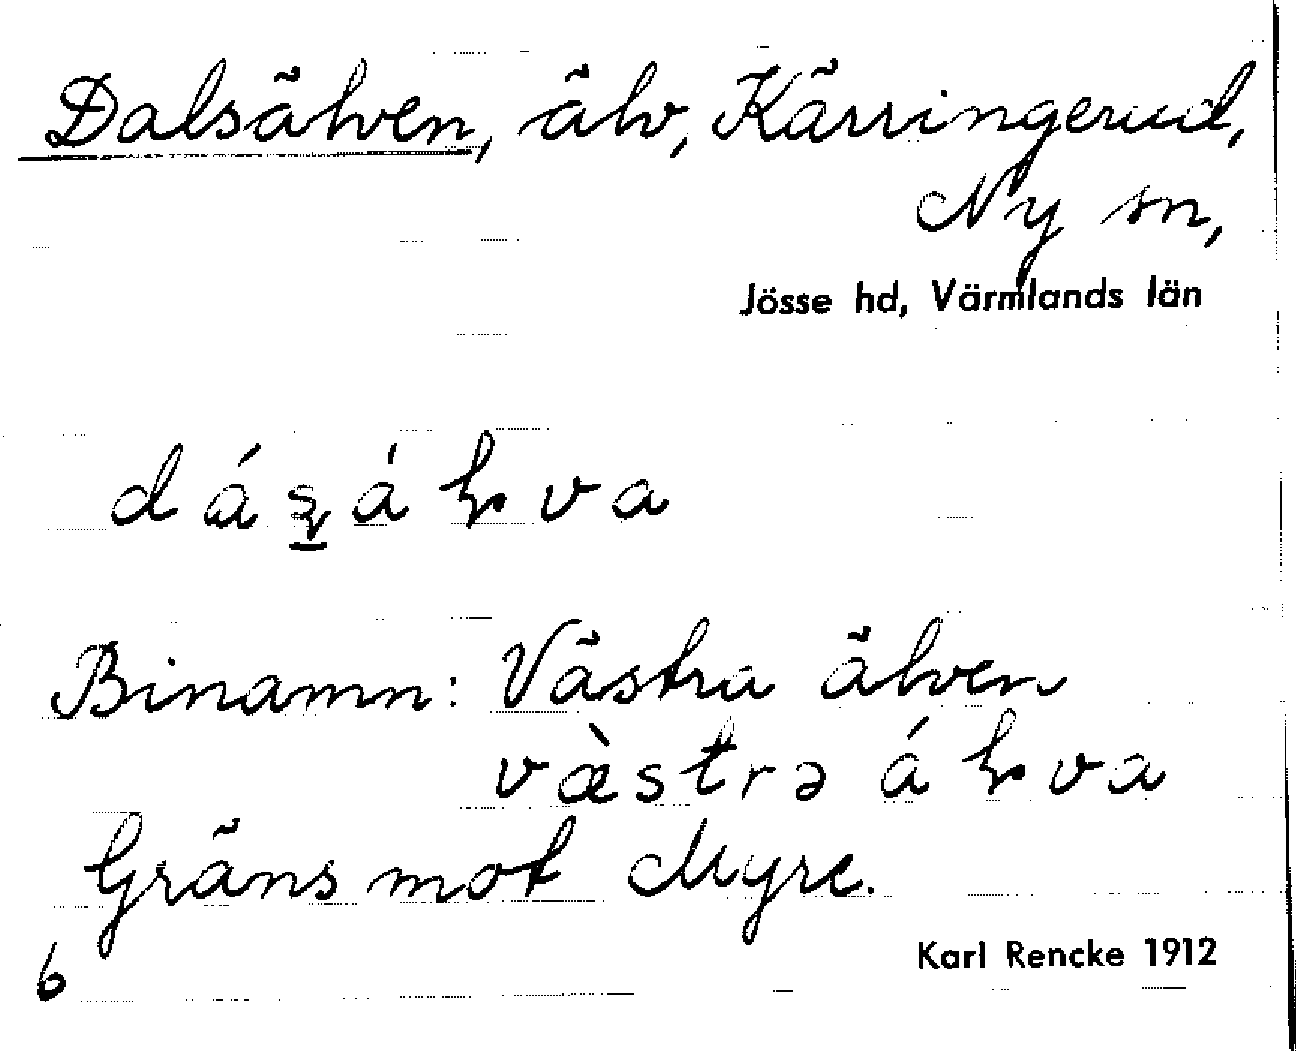 Dalsälven, älv, Kärringerud,
Ny sn,
Jösse hd, Värmlands län
Binamn: Västra älven
Gräns mot Myre.
Karl Rencke 1912
6